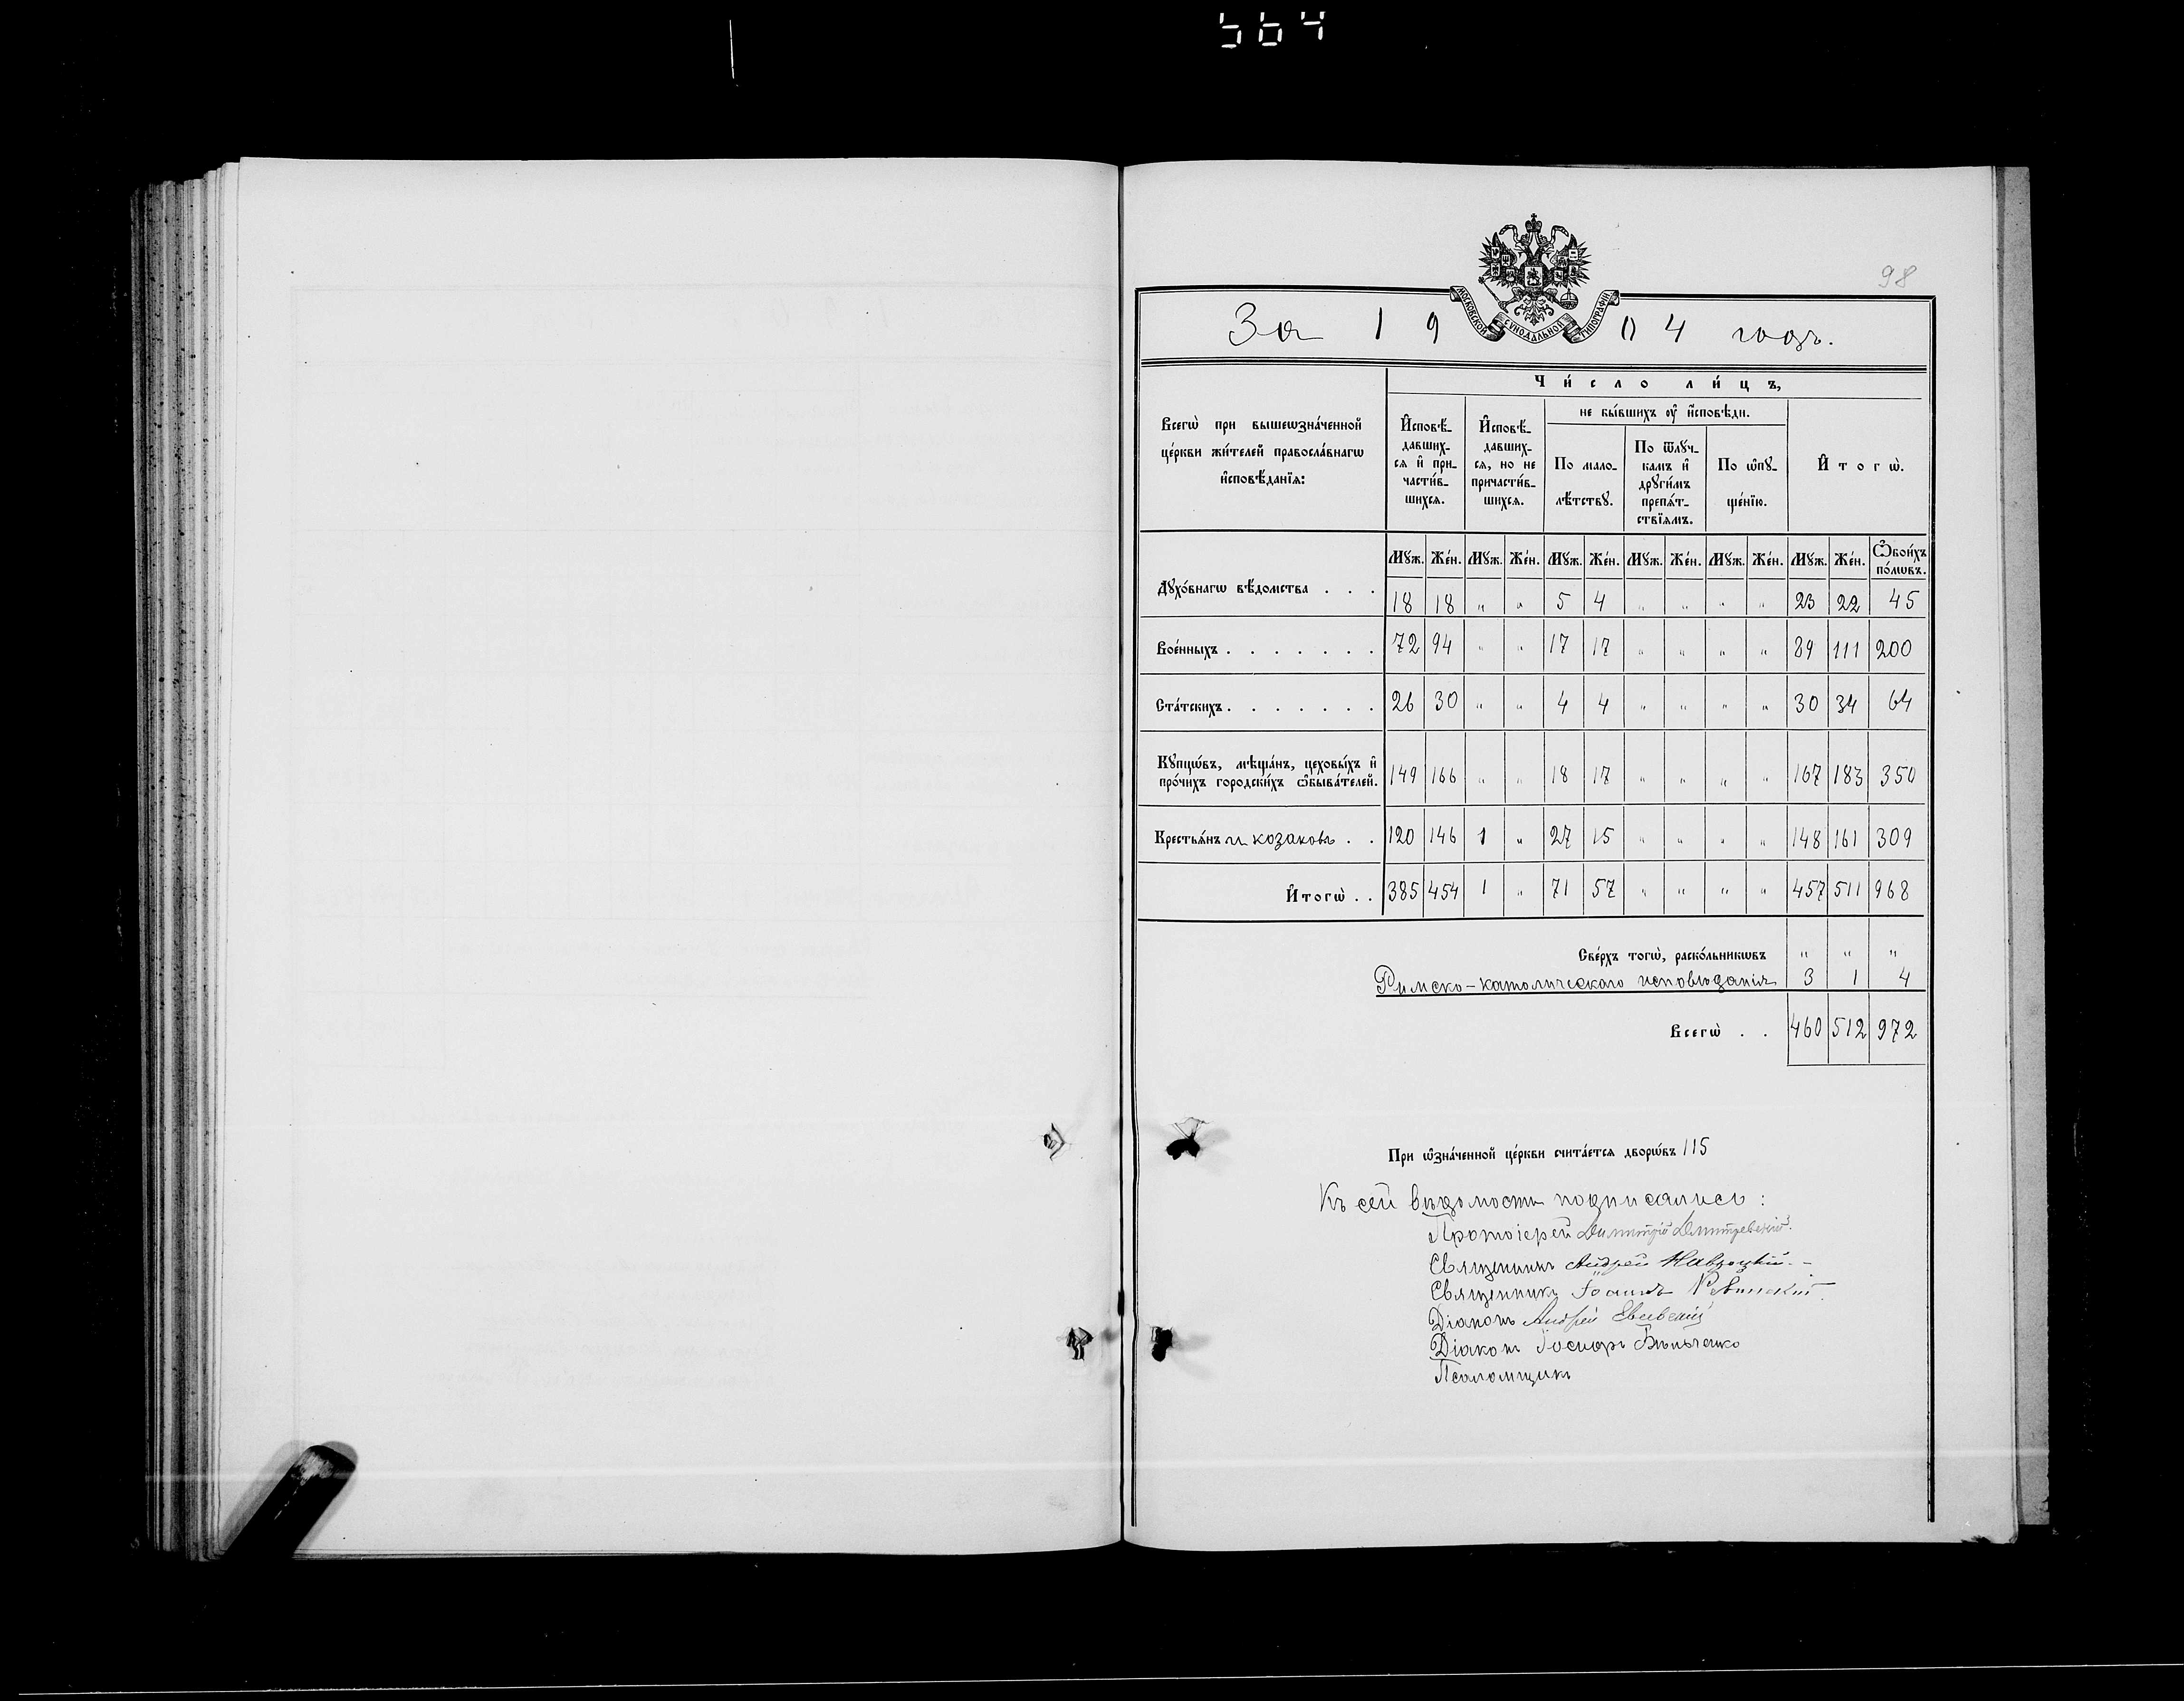 564
98
МОСКОВСКОЙ СУНОДАЛЬНОЙ ТИПОГРАФІИ
За 1904 годъ.
Чи́сло ли́цъ,
Всегѡ̀ при вышеѡзна́ченной це́ркви жи́телей правосла́внагѡ и҆сповѣ́данїѧ:
И҆сповѣ́давшихсѧ и҆ причасти́вшихсѧ.
И҆сповѣ́давшихсѧ, но не причасти́вшихсѧ.
не бы́вшихъ оу҆ и҆́сповѣди.
По малолѣ́тствꙋ.
По ѿлꙋчкамъ и҆ дрꙋги́мъ препѧ́тствїѧмъ.
По ѡ҆пꙋще́нїю.
И҆тогѡ̀.
Мꙋж. Же́н. Мꙋж. Же́н. Мꙋж. Же́н. Мꙋж. Же́н. Мꙋж. Же́н. Мꙋж. Же́н. Ѻ҆бои́хъ по́лѡвъ.
Дꙋхо́внагѡ вѣ́домства . . . 18 18 „ „ 5 4 „ „ „ „ 23 22 45
Вое́нныхъ . . . . . . . 72 94 „ „ 17 17 „ „ „ „ 89 111 200
Ста́тскихъ . . . . . . . 26 30 „ „ 4 4 „ „ „ „ 30 34 64
Кꙋпцѡ́въ, мѣща́нъ, цеховы́хъ и҆
про́чихъ городски́хъ ѡ҆быва́телей. 149 166 „ „ 18 17 „ „ „ „ 167 183 350
Крестьѧ́нъ и козаковъ . . 120 146 1 „ 27 15 „ „ „ „ 148 161 309
И҆тогѡ̀ . . 385 454 1 „ 71 57 „ „ „ „ 457 511 968
Све́рхъ тогѡ̀, раско́льникѡвъ „ „ „
Римско-католическаго исповѣданія 3 1 4
Всегѡ̀ . . 460 512 972
При ѡ҆зна́ченной це́ркви счита́етсѧ дворѡ́въ 115
Къ сей вѣдомости подписались:
Протоіерей Димитрій Дмитревскій.
Священникъ Андрей Навроцкій.
Священникъ Іоаннъ
Діаконъ Андрей
Діаконъ Іосифъ
Псаломщикъ